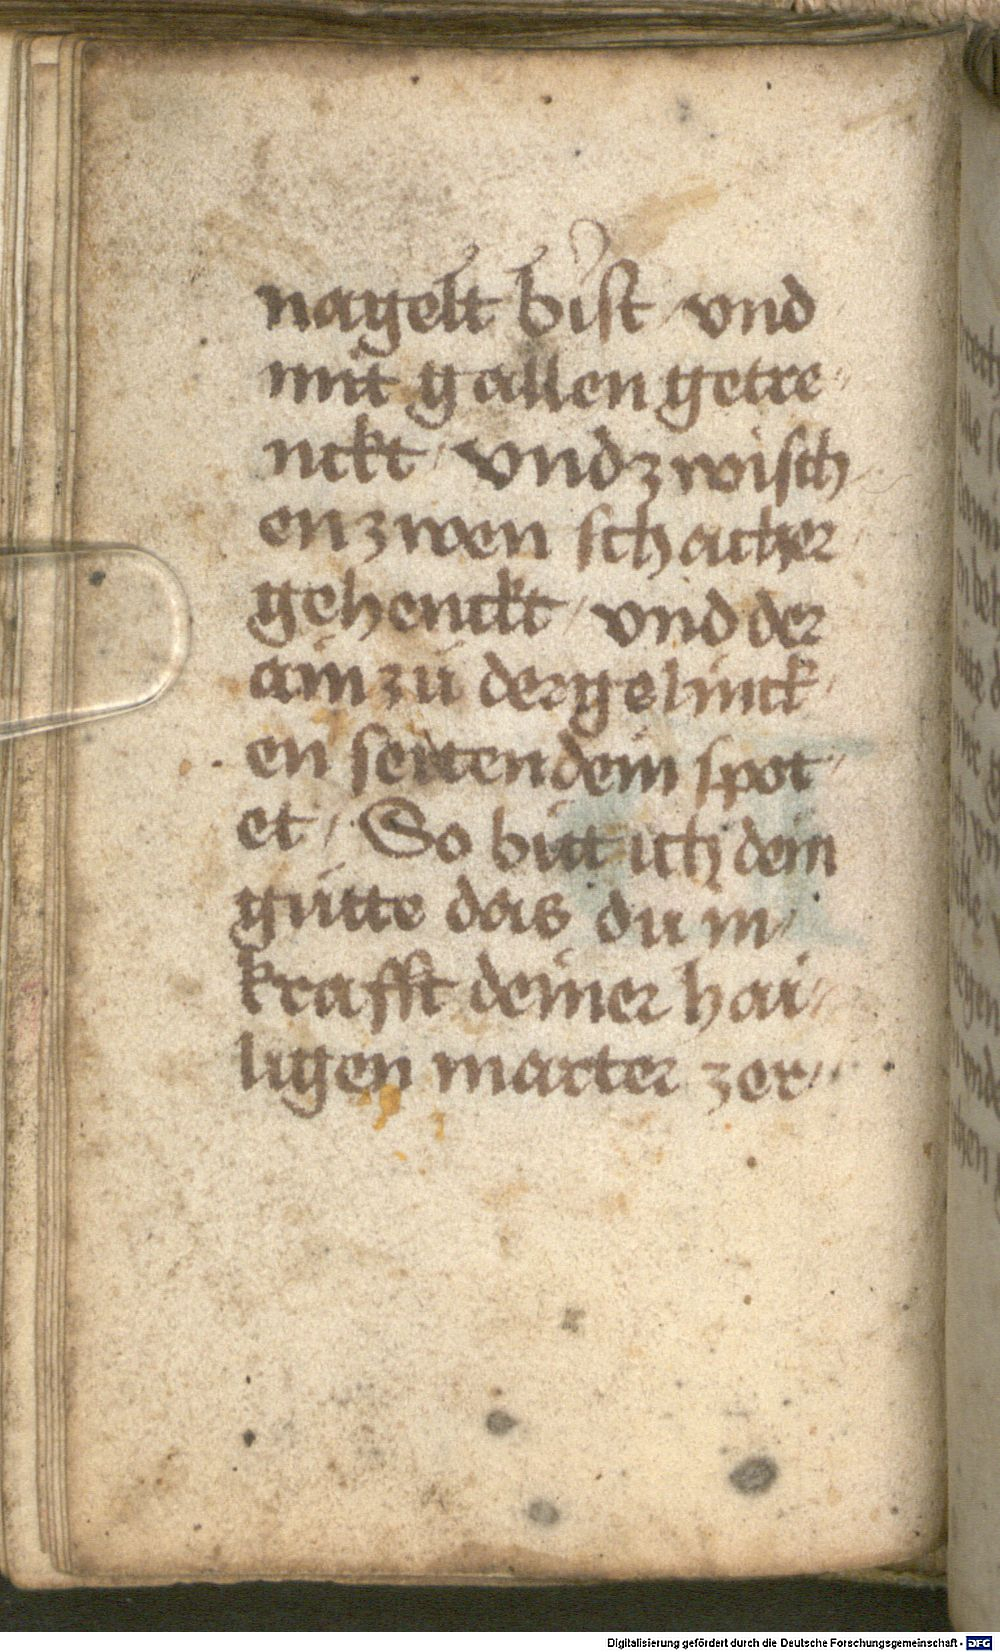 nagelt bist / vnd
mit gallen getre/
nckt / vnd zwisch
en zwen schacher
gehenckt / vnd der
ain zu der gelinck/
en seitten dein spot/
et / So bitt ich dein
gütte das du in/
krafft deiner hai/
ligen marter zer/
Digitalisierung gefördert durch die Deutsche Forschungsgemeinschaft - DFG